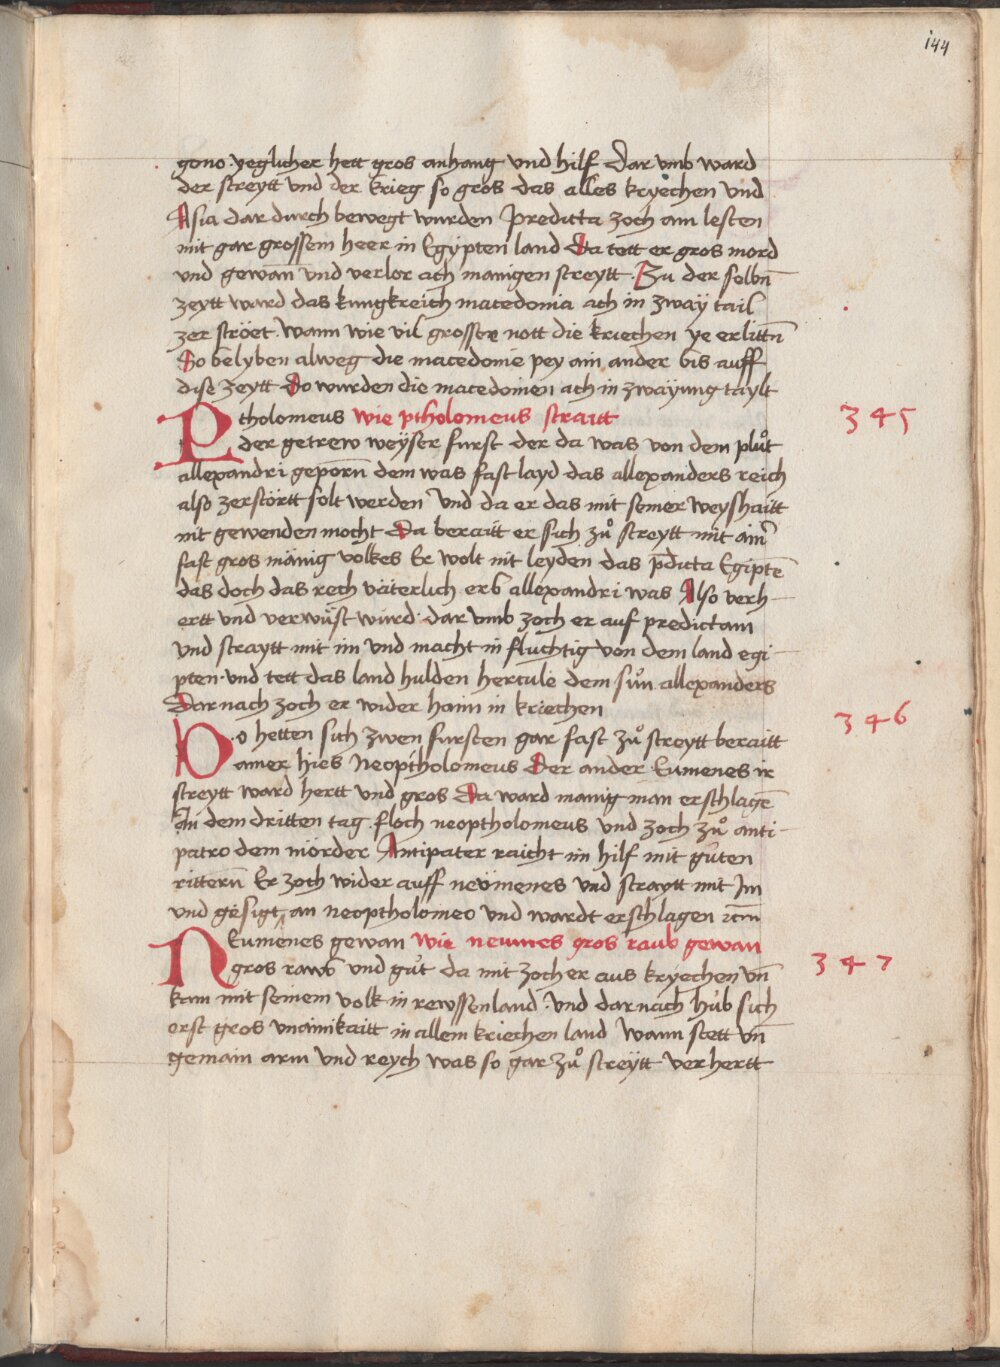 144
gono yeglicher hett gros anhang vnd hilf Dar vmb ward
der streytt vnd der krieg so gros das alles kryechen vnd
Asia dar durch bewegt wurden Predicta zoch am lesten
mit gar grossem heer in Egypten land Da tett er gros mord
vnd gewan̄ vnd verlor ach manigen streytt. Zu der selbn̄
zeytt ward das kungkreich macedonia ach in zway tail
zer ströet. wann wie vil grosser nott die kriechen ye erlittn̄
So belyben alweg die macedonie pey ain ander bis auff
dise zeytt Do wurden die macedonien ach in zwayung taylt
Ptholomeus wie ptholomeus straitt
345
der getrew weyser furst der da was von dem plůt
allexandri geporn̄ dem was fast layd das allexanders reich
also zerstörtt solt werden vnd da er das mit seiner weyshaitt
nit gewenden mocht Da beraitt er sich zů streytt mit ain̄
fast gros mänig volkes Er wolt nit leyden das p̄dicta Egiptē
das doch das rech väterlich erb allexandri was Also verh-
ertt vnd verwüst wurd. dar vmb zoch er auf predictam
vnd straytt mit im vnd macht in fluchtig von dem land egi-
pten. vnd tett das land hulden hercule dem sůn allexanders
Dar nach zoch er wider haim in kriechen
346
Do hetten sich zwen fursten gar fast zů streytt beraitt
ainer hies Neoptholomeus Der ander Eumenes ir
streytt ward hertt vnd gros Da ward manig man erschlagē
An dem dritten tag floch neoptholomeus vnd zoch zů anti-
patro dem mörder Antipater raicht im hilf mit gůten
rittern̄ Er zoch wider auff neömenes vnd straytt mit Im
vnd gesigt an neoptholomeo vnd wardt erschlagen
Neumenes gewan wie neumes gros raub gewan
347
gros rawb vnd gůt da mit zoch er aus kryechen vn̄
kam mit seinem volk in rewssenland. vnd dar nach hůb sich
erst gros vnainikaitt in allem kriechen land wann stett vn̄
gemain arm vnd reych was so gar zů streytt verhertt